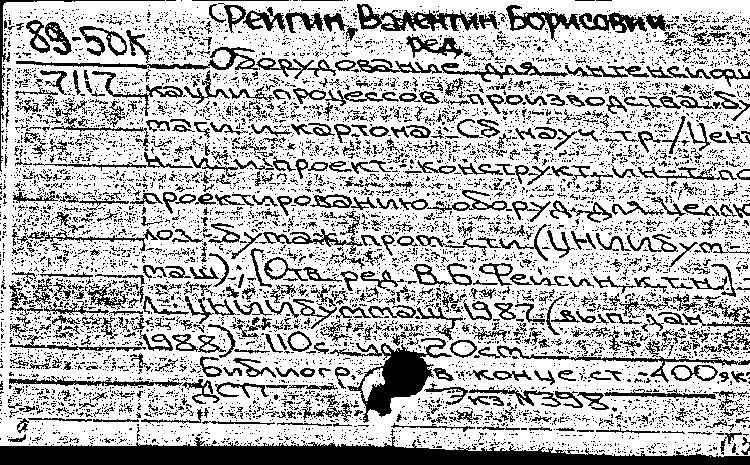 Фейгин, Валентин Борисович
89-50К ред.
Оборудование для интенсифи
7117 кации процессов производства бу
маги и картона: Сб. науч. тр. / Цент
н.-и. и проект.-конструкт. ин-т по
проектированию оборуд. для целлю
лоз.-бумаж. пром-сти (ЦНИИбум-
маш); [Отв. ред. В.Б. Фейгин, к.т.н.]
Л.: ЦНИИбуммаш, 1987 (вып. дан.
1988) - 110с. ил. 20см.
Библиогр. в конце ст. - 400 эк
ДСП. Экз N398.